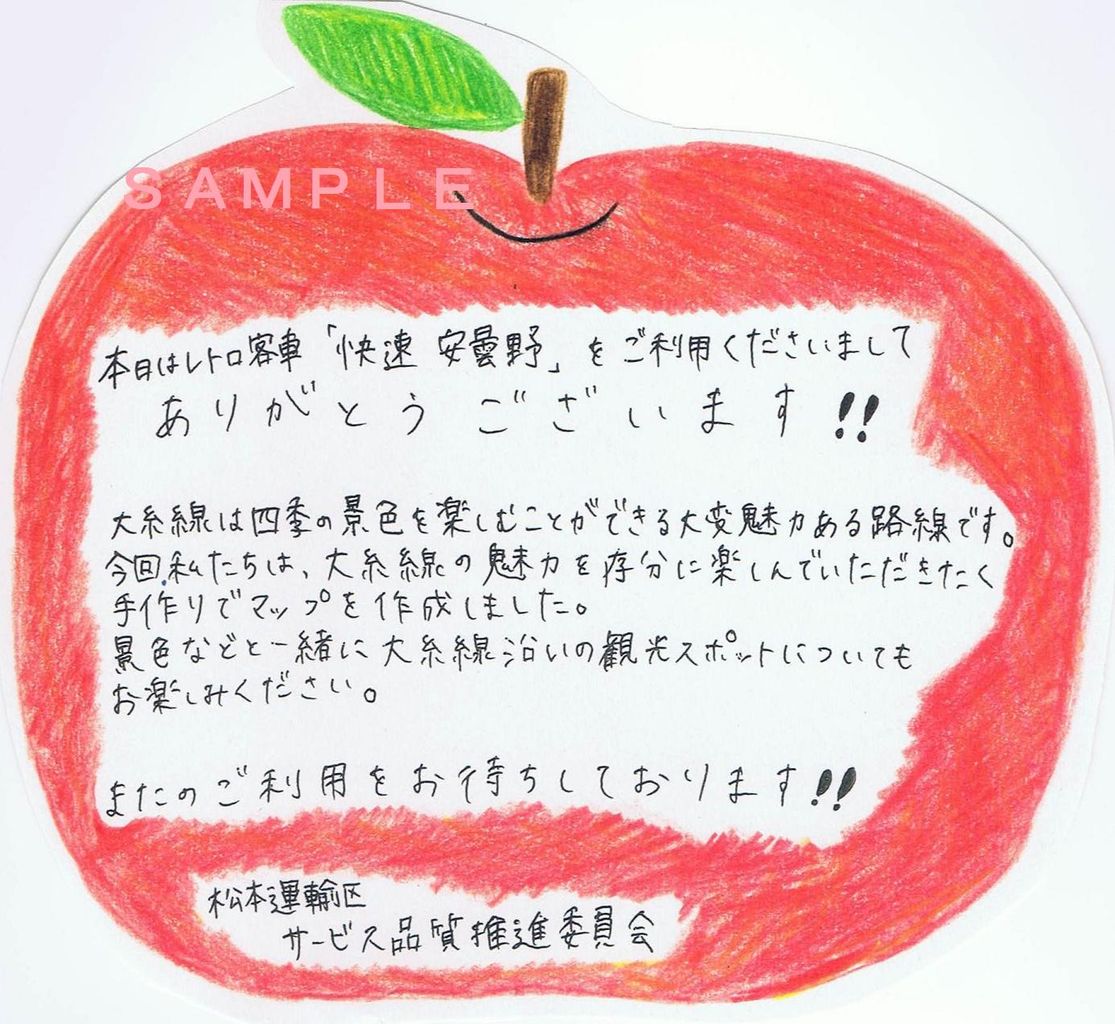 SAMPLE
本日はレトロ客車「快速 安曇野」をご利用くださいまして
ありがとうございます!!
大糸線は四季の景色を楽しむことができる大変魅力ある路線です。
今回私たちは、大糸線の魅力を存分に楽しんでいただきたく
手作りでマップを作成しました。
景色などと一緒に大糸線沿いの観光スポットについても
お楽しみください。
またのご利用をお待ちしております!!
松本運輸区
サービス品質推進委員会